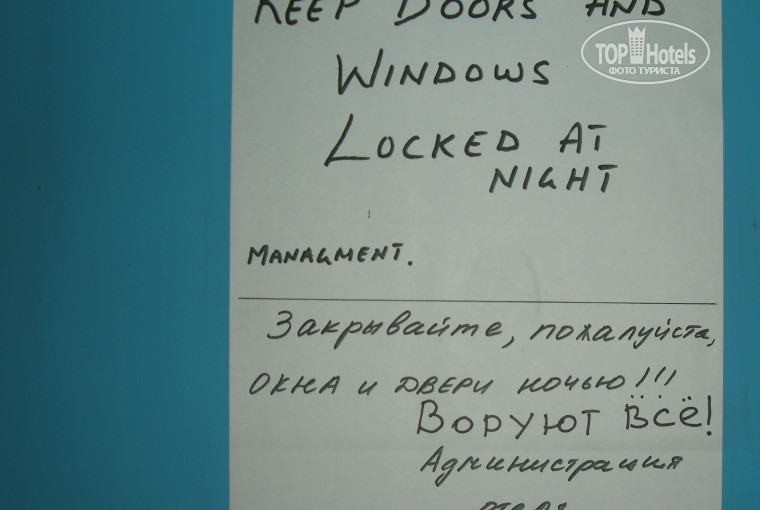 KEEP DOORS AND
WINDOWS
LOCKED AT
NIGHT
MANAGMENT.
Закрывайте, пожалуйста,
ОКНА и ДВЕРИ ночью!!!
Воруют всё!
Администрация
TOP Hotels
ФОТО ТУРИСТА